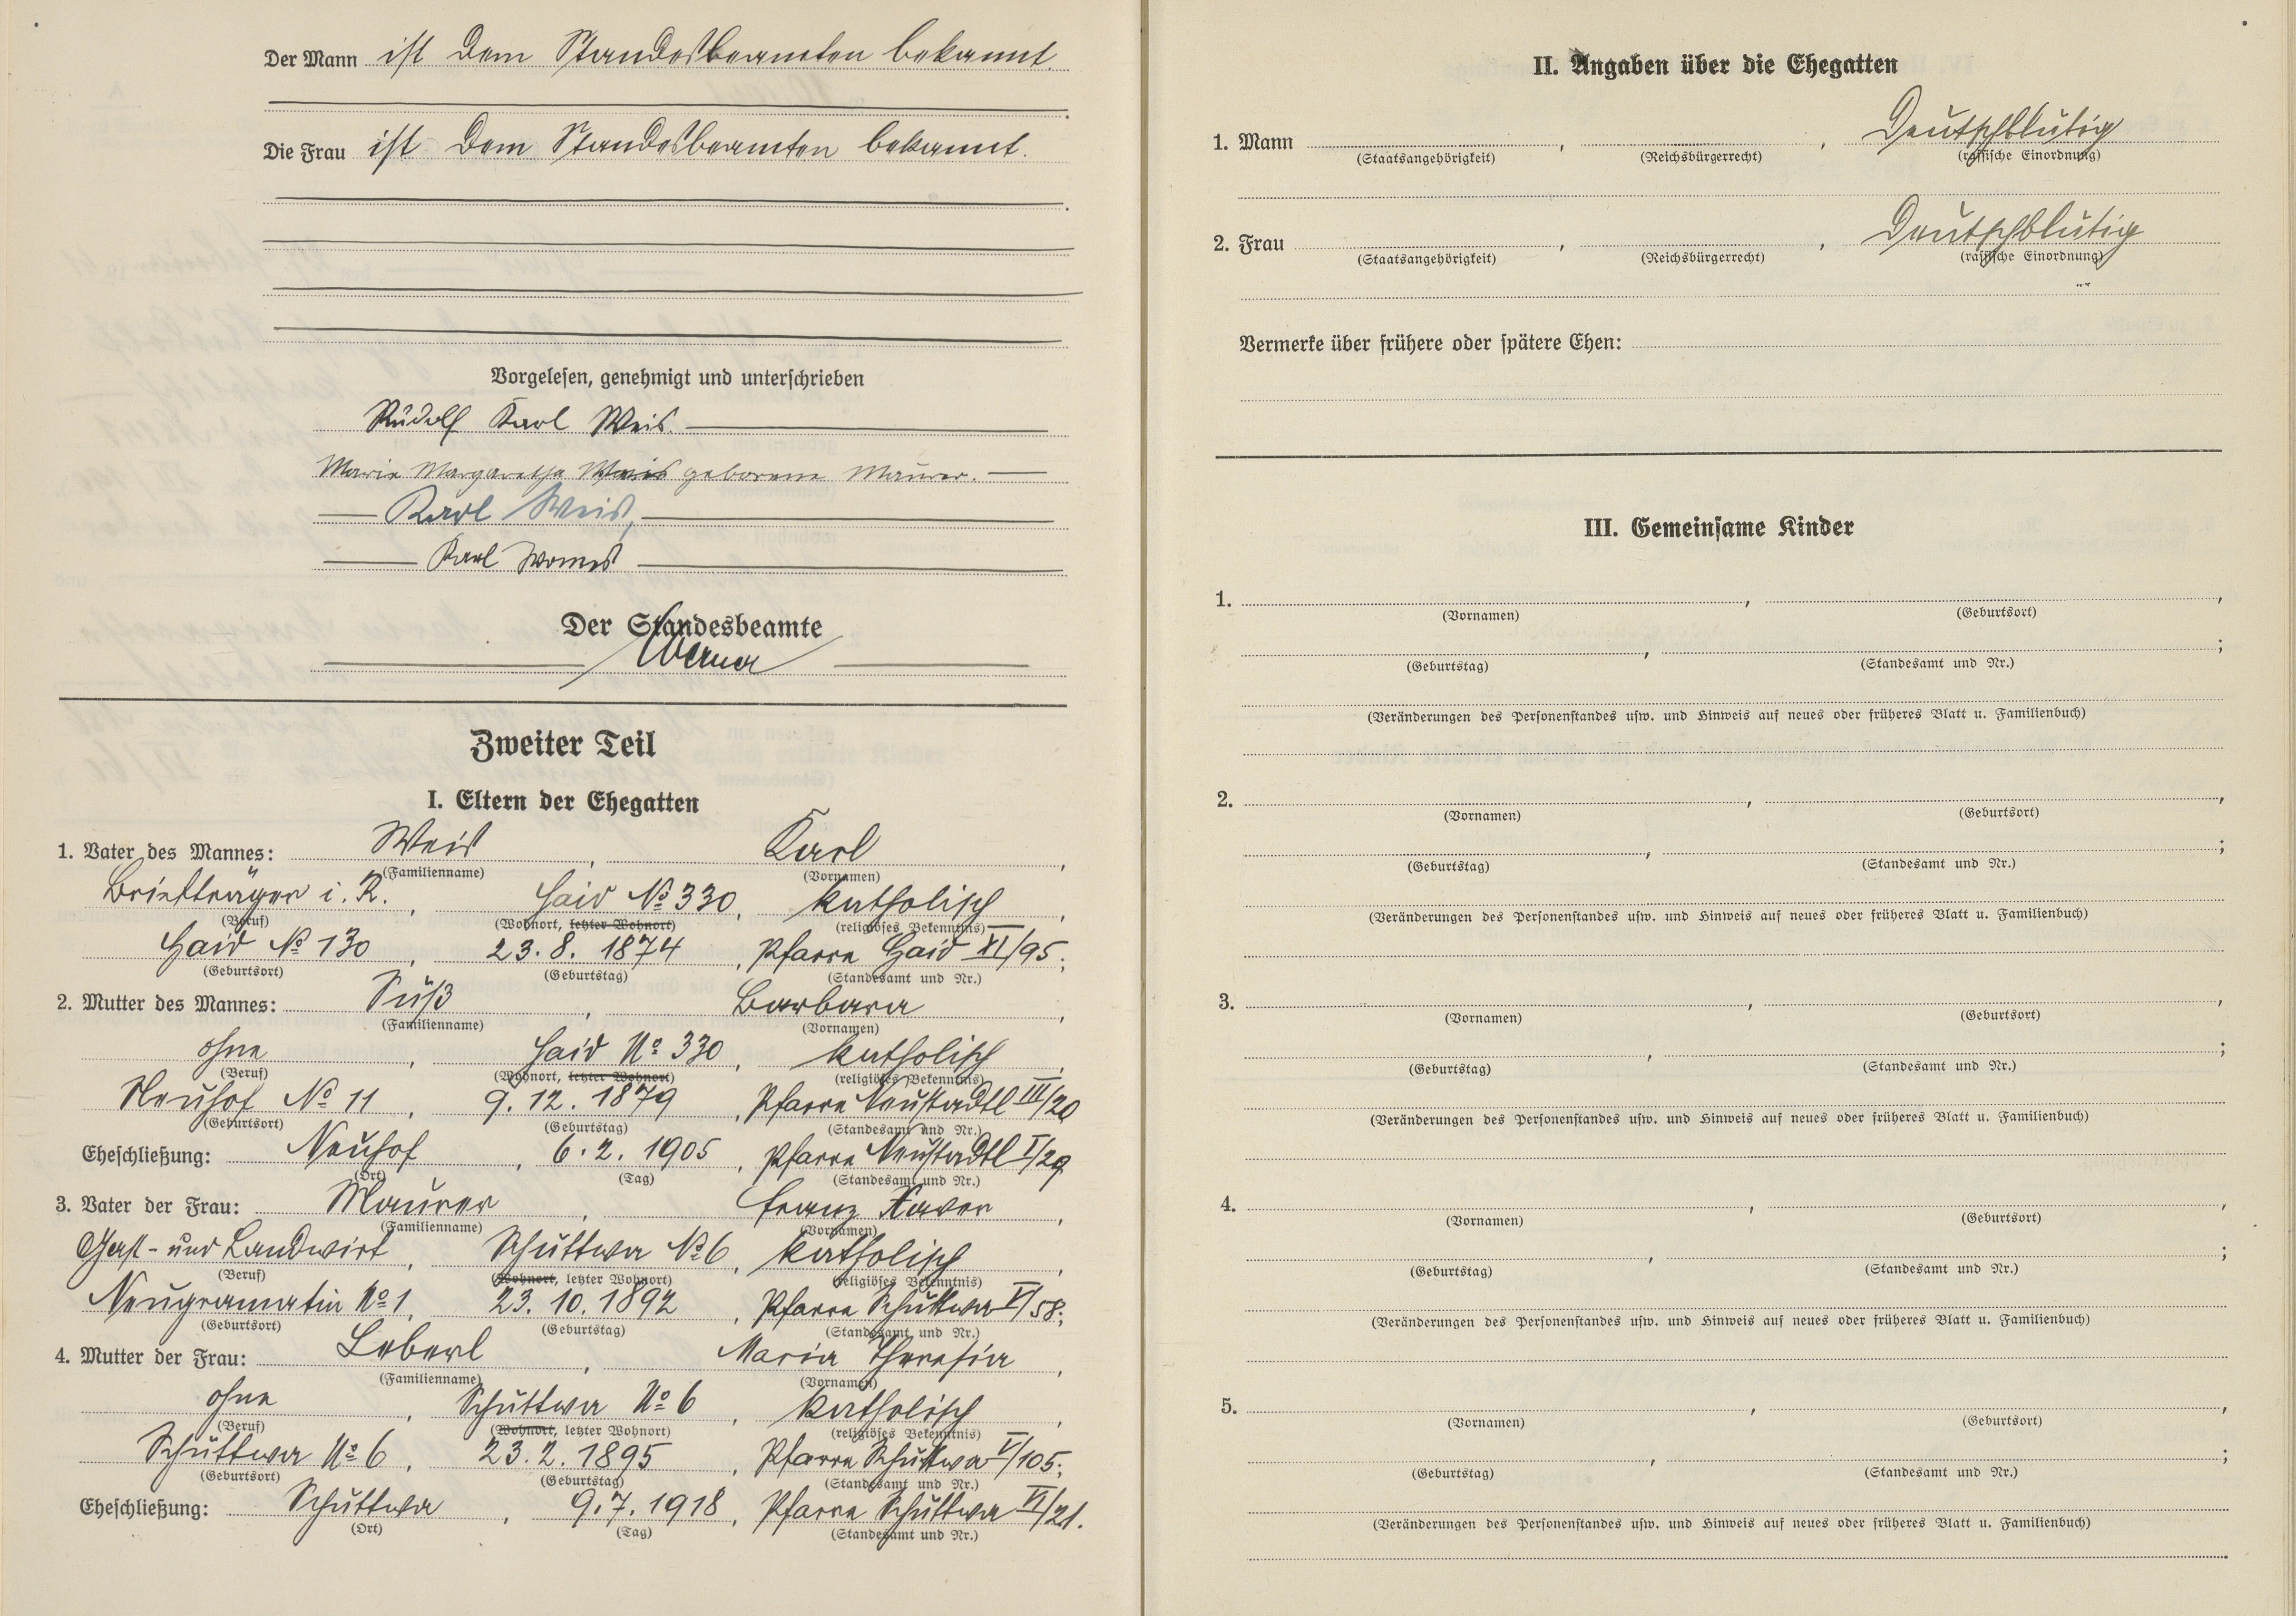 Der Mann ist dem Standesbeamten bekannt.
Die Frau ist dem Standesbeamten bekannt.
Vorgelesen, genehmigt und unterschrieben
Rudolf Karl Weis.
Marie Margaretha Weis geborene Maurer.
Karl Weis,
Karl
Der Standesbeamte
Werner
Zweiter Teil
I. Eltern der Ehegatten
1. Vater des Mannes: Weis, Karl,
(Familienname) (Vornamen)
Briefträger i. R., Haid No 330, katholisch,
(Beruf) (Wohnort, letzter Wohnort) (religiöses Bekenntnis)
Haid No 130, 23.8.1874, Pfarre Haid XI/95;
(Geburtsort) (Geburtstag) (Standesamt und Nr.)
2. Mutter des Mannes: Süß, Barbara,
(Familienname) (Vornamen)
ohne, Haid No 330, katholisch,
(Beruf) (Wohnort, letzter Wohnort) (religiöses Bekenntnis)
Neuhof No 11, 9.12.1879, Pfarre Neustadtl III/20
(Geburtsort) (Geburtstag) (Standesamt und Nr.)
Eheschließung: Neuhof, 6.2.1905, Pfarre Neustadtl I/29
(Ort) (Tag) (Standesamt und Nr.)
3. Vater der Frau: Maurer, Franz Xaver,
(Familienname) (Vornamen)
Gast- und Landwirt, Schüttwa No 6, katholisch,
(Beruf) (Wohnort, letzter Wohnort) (religiöses Bekenntnis)
Neugramatin No 1, 23.10.1892, Pfarre Schüttwa V/58;
(Geburtsort) (Geburtstag) (Standesamt und Nr.)
4. Mutter der Frau: Leberl, Maria Theresia,
(Familienname) (Vornamen)
ohne, Schüttwa No 6, katholisch,
(Beruf) (Wohnort, letzter Wohnort) (religiöses Bekenntnis)
Schüttwa No 6, 23.2.1895, Pfarre Schüttwa V/105;
(Geburtsort) (Geburtstag) (Standesamt und Nr.)
Eheschließung: Schüttwa, 9.7.1918, Pfarre Schüttwa VI/21.
(Ort) (Tag) (Standesamt und Nr.)
II. Angaben über die Ehegatten
1. Mann , , Deutschblütig
(Staatsangehörigkeit) (Reichsbürgerrecht) (rassische Einordnung)
2. Frau , , Deutschblütig
(Staatsangehörigkeit) (Reichsbürgerrecht) (rassische Einordnung)
Vermerke über frühere oder spätere Ehen:
III. Gemeinsame Kinder
1. , ,
(Vornamen) (Geburtsort)
, ;
(Geburtstag) (Standesamt und Nr.)
(Veränderungen des Personenstandes usw. und Hinweis auf neues oder früheres Blatt u. Familienbuch)
2. , ,
(Vornamen) (Geburtsort)
, ;
(Geburtstag) (Standesamt und Nr.)
(Veränderungen des Personenstandes usw. und Hinweis auf neues oder früheres Blatt u. Familienbuch)
3. , ,
(Vornamen) (Geburtsort)
, ;
(Geburtstag) (Standesamt und Nr.)
(Veränderungen des Personenstandes usw. und Hinweis auf neues oder früheres Blatt u. Familienbuch)
4. , ,
(Vornamen) (Geburtsort)
, ;
(Geburtstag) (Standesamt und Nr.)
(Veränderungen des Personenstandes usw. und Hinweis auf neues oder früheres Blatt u. Familienbuch)
5. , ,
(Vornamen) (Geburtsort)
, ;
(Geburtstag) (Standesamt und Nr.)
(Veränderungen des Personenstandes usw. und Hinweis auf neues oder früheres Blatt u. Familienbuch)